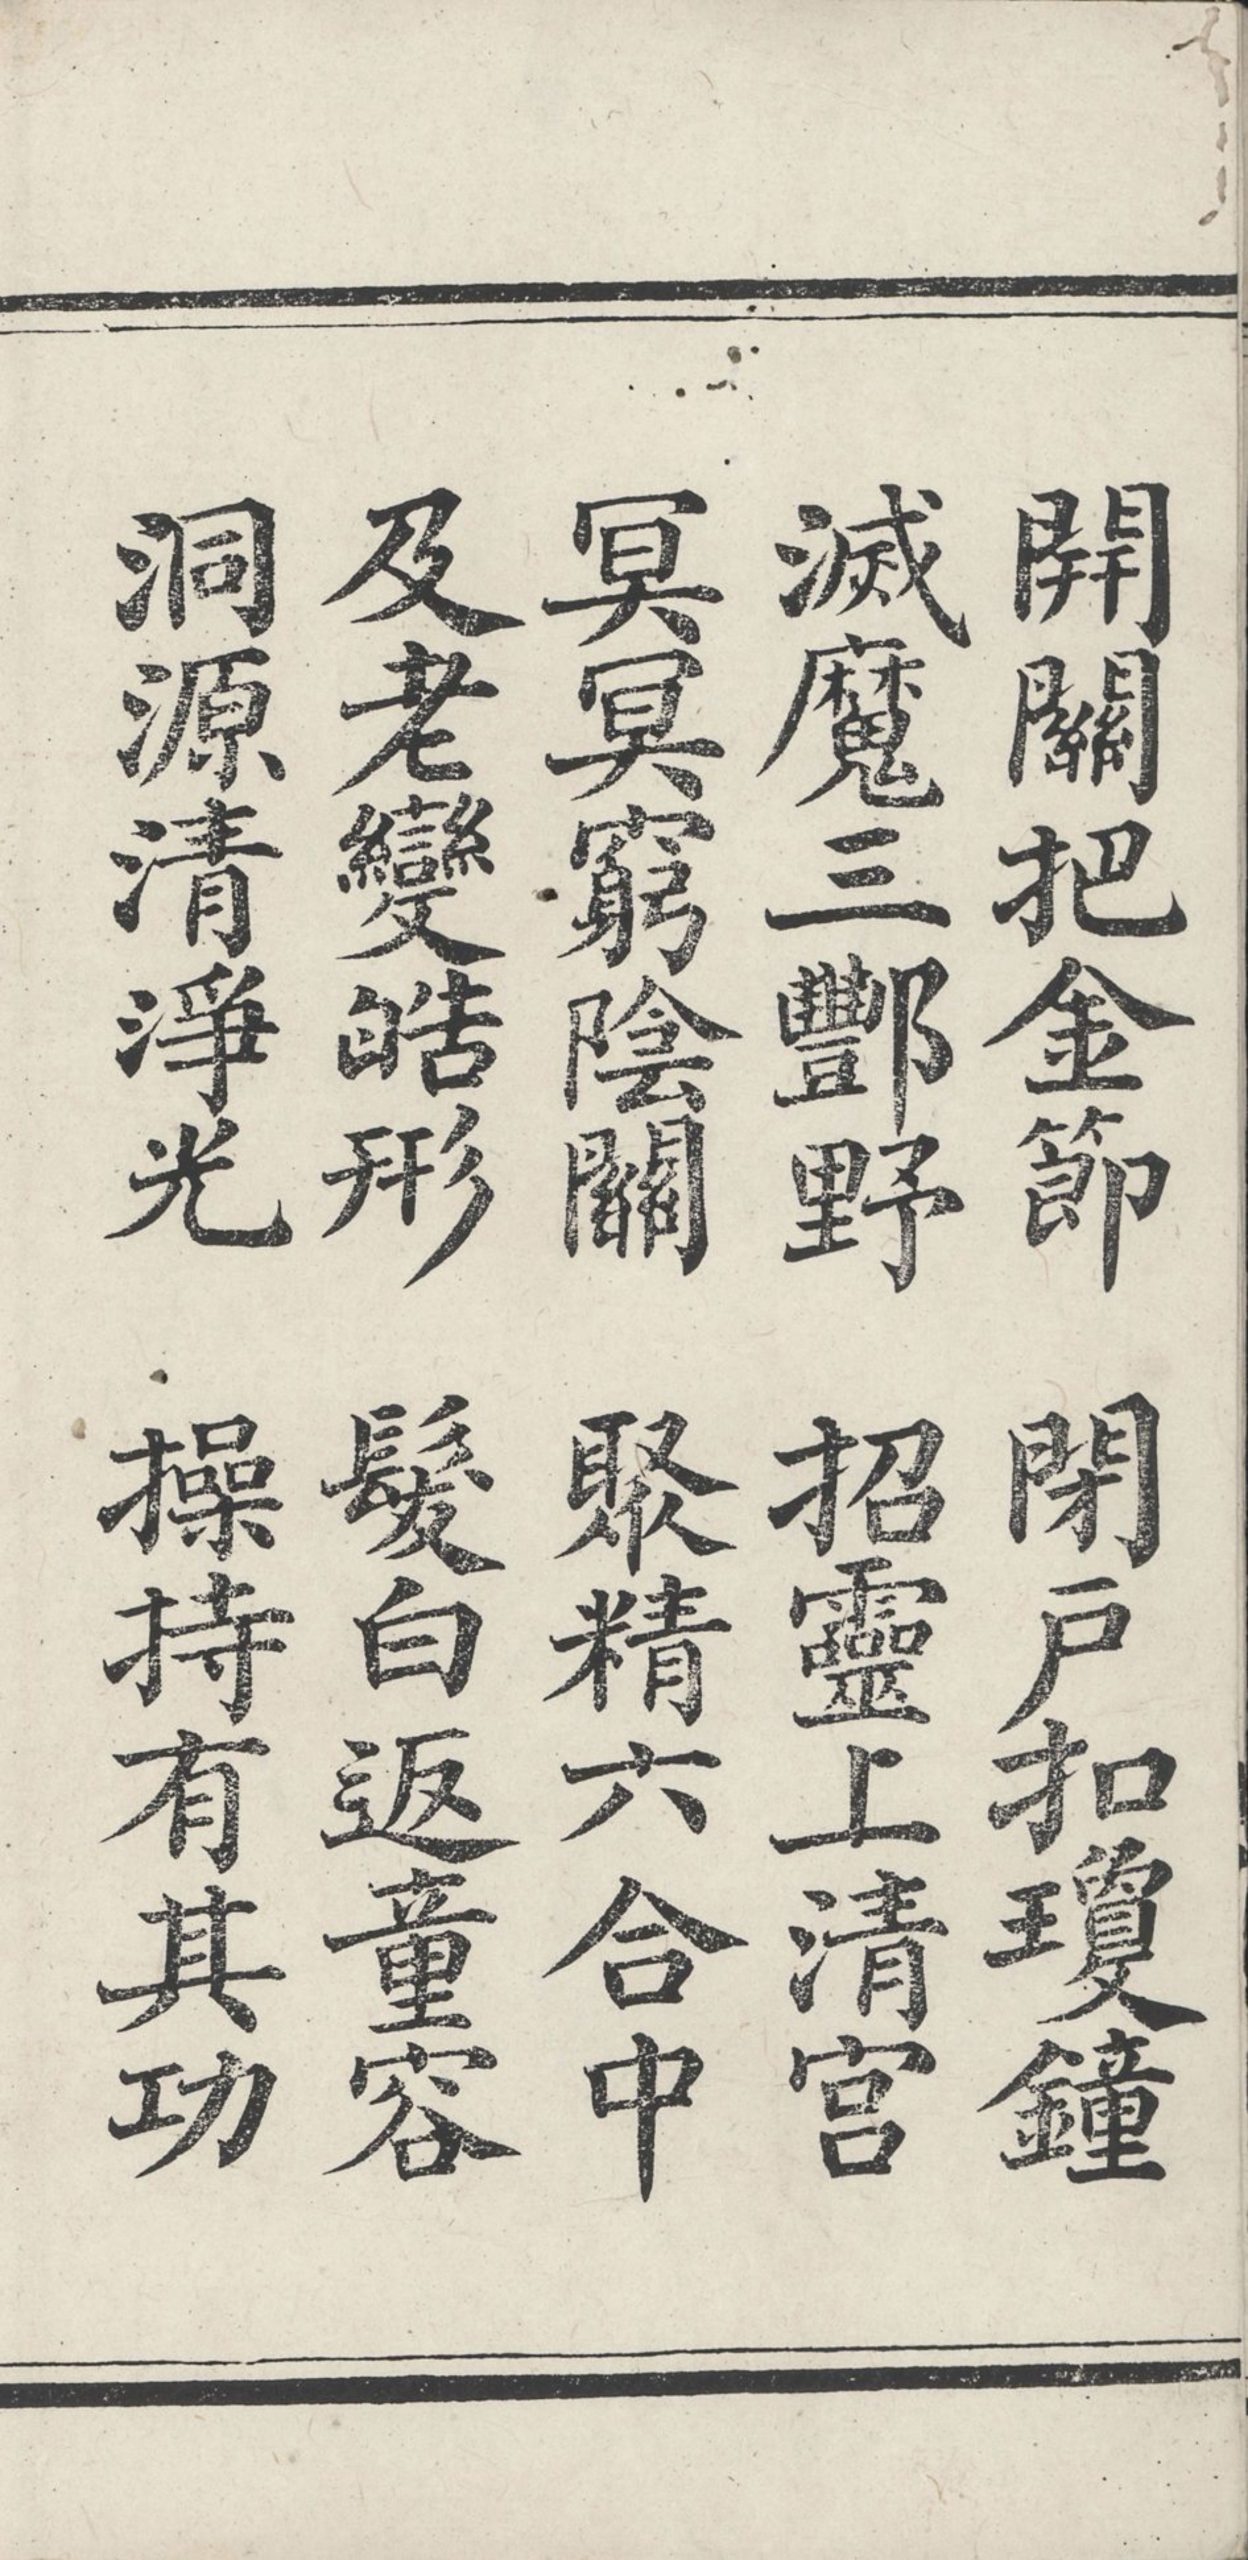 開關把金節　閉戶扣瓊鐘
滅魔三酆野　招靈上清宮
冥冥窮陰關　聚精六合中
及老變皓形　髮白返童容
洞源清淨光　操持有其功